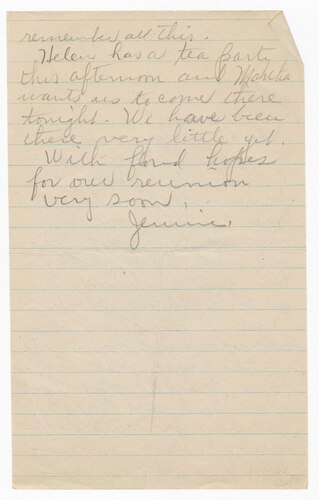 remember all this.
Helen has a tea party
this afternoon and Marsha
wants us to come there
tonight. We have been
there very little yet.
With fond hopes
for our reunion
very soon.
Jennie.